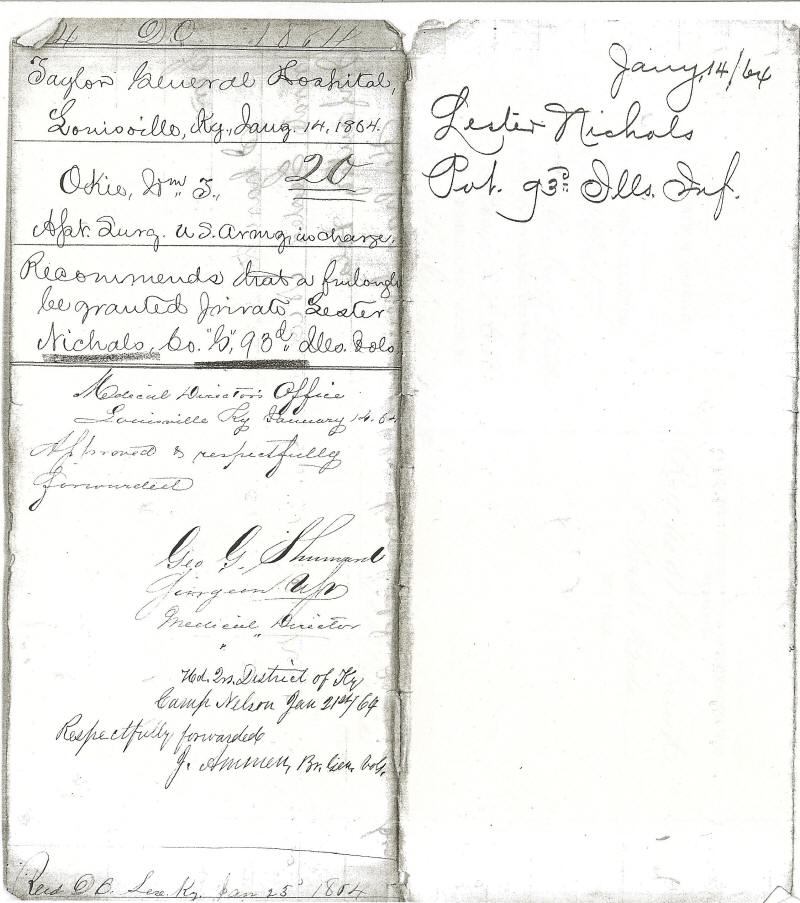 4 D.C. 1864
Taylor General Hospital,
Louisville, Ky., Jany. 14, 1864.
20
Okie, Wm T.,
Asst. Surg. U.S. Army, in charge,
Recommends that a furlough
be granted Private Lester
Nichols, Co. "G", 93d Ills. Vols
Medical Director's Office
Louisville Ky January 14. 64
Approved & respectfully
forwarded
Geo G. Shumard
Surgeon
Medical Director
" "
Hd. Qrs. District of Ky
Camp Nelson Jan 21st/64
Respectfully forwarded
J. Ammen, Br. Gen. Vols.
Recd D.C. Lex. Ky. Jan 23 1864
Jany, 14/64
Lester Nichols
Pvt. 93d Ills. Inf.